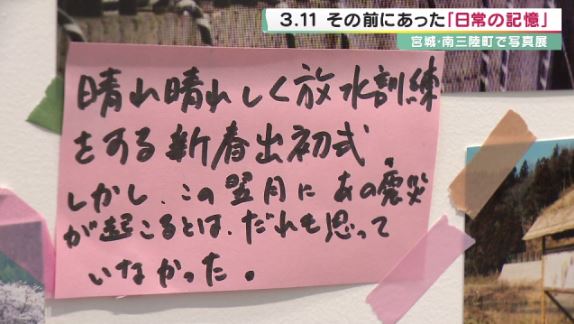 3.11 その前にあった「日常の記憶」
宮城・南三陸町で写真展
晴れ晴れしく放水訓練
をする新春出初式
しかし、この翌月にあの震災
が起こるとは、だれも思って
いなかった。